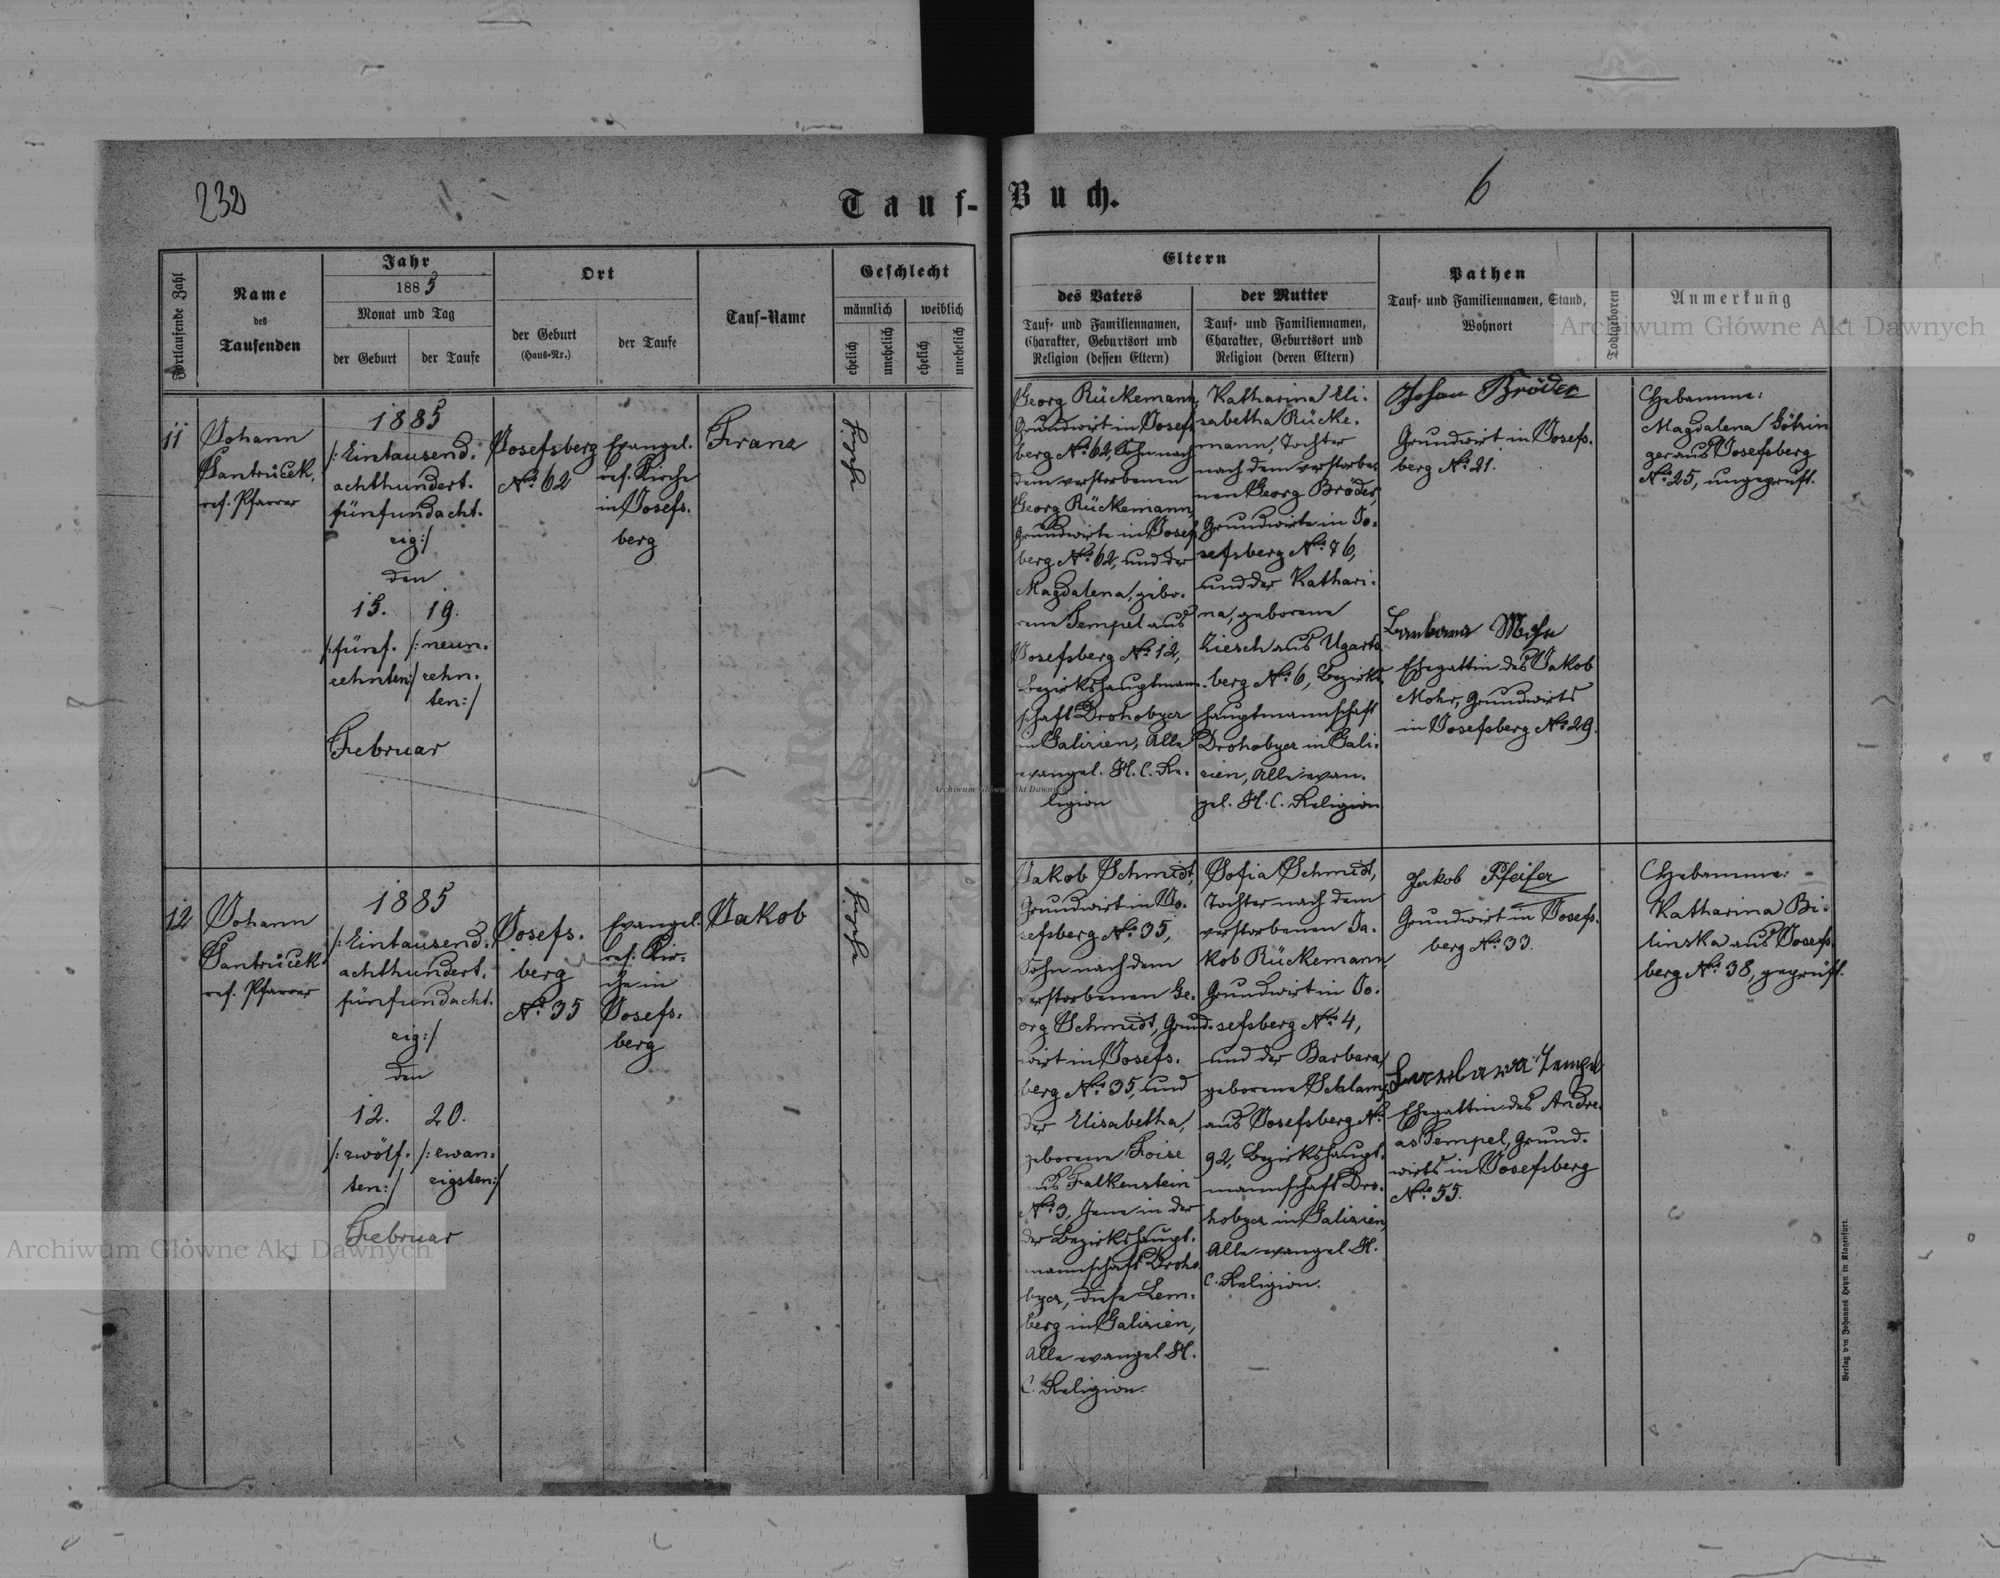 232
6
Tauf-Buch.
Fortlaufende Zahl
Name
des
Taufenden
Jahr
1885
Monat und Tag
der Geburt
der Taufe
Ort
der Geburt
(Haus-Nr.)
der Taufe
Tauf-Name
Geschlecht
männlich
weiblich
ehelich
unehelich
ehelich
unehelich
Eltern
des Vaters
Tauf- und Familiennamen,
Charakter, Geburtsort und
Religion (dessen Eltern)
der Mutter
Tauf- und Familiennamen,
Charakter, Geburtsort und
Religion (deren Eltern)
Pathen
Tauf- und Familiennamen, Stand,
Wohnort
Todtgeboren
Anmerkung
Archiwum Główne Akt Dawnych
11
Johann
Jantrůcek,
ref. Pfarrer
1885
/:Eintausend.
achthundert.
fünfundacht.
zig:/
den
15.
19.
/:fünf.
zehnten:/
/:neun.
zehn.
ten:/
Februar
Josefsberg
No. 62
Evangel.
ref. Kirche
in Josefs.
berg
Franz
ehelich
Georg Rückemann,
Grundwirt in Josefs
berg No. 62, Sohn nach
dem verstorbenen
Georg Rückemann,
Grundwirte in Josefs
berg No. 62, und der
Magdalena, gebo.
rene Tempel aus
Josefsberg No. 12,
Bezirkshauptmann.
schaft Drohobycz
in Galizien, Alle
evangel. H. C. Re.
ligion
Katharina Eli.
sabetha Rücke.
mann, Tochter
nach dem verstorbe.
nen Georg Bröder,
Grundwirte in Jo.
sefsberg No. 76,
und der Kathari.
na, geborene
Ziesch aus Ugarts.
berg No. 6, Bezirks.
hauptmannschaft
Drohobycz in Gali.
zien, Alle evan.
gel. H. C. Religion
Johan Bröder
Grundwirt in Josefs.
berg No. 21.
Barbara Mohr
Ehegattin des Jakob
Mohr, Grundwirts
in Josefsberg No. 29.
Hebamme:
Magdalena Götzin
ger aus Josefsberg
No. 25, ungeprüft.
Archiwum Główne Akt Dawnych
12
Johann
Jantrůcek
ref. Pfarrer
1885
/:Eintausend.
achthundert.
fünfundacht.
zig:/
den
12.
20.
/:zwölf.
ten:/
/:zwan.
zigsten:/
Februar
Josefs.
berg
No. 35
Evangel.
ref. Kir.
che in
Josefs.
berg
Jakob
ehelich
Jakob Schmidt,
Grundwirt in Jo.
sefsberg No. 35,
Sohn nach dem
verstorbenen Ge.
org Schmidt, Grund.
wirt in Josefs.
berg No. 35, und
der Elisabetha,
geborene Foise
aus Falkenstein
No. 3, Jene in der
der Bezirkshaupt.
mannschaft Droho
bycz, diese Lem.
berg in Galizien,
Alle evangel. H.
C. Religion.
Sofia Schmidt,
Tochter nach dem
verstorbenen Ja.
kob Rückemann,
Grundwirt in Jo.
sefsberg No. 4,
und der Barbara,
geborene Schlamp
aus Josefsberg No.
92, Bezirkshaupt.
mannschaft Dro.
hobycz in Galizien
Alle evangel. H.
C. Religion.
Jakob Pfeifer
Grundwirt in Josefs.
berg No. 33.
Barbara Tempel
Ehegattin des Andre.
as Tempel, Grund.
wirts in Josefsberg
No. 55.
Hebamme:
Katharina Bi.
linska aus Josefs.
berg No. 38, geprüft.
Archiwum Główne Akt Dawnych
Verlag von Johannes Heyn in Klagenfurt.